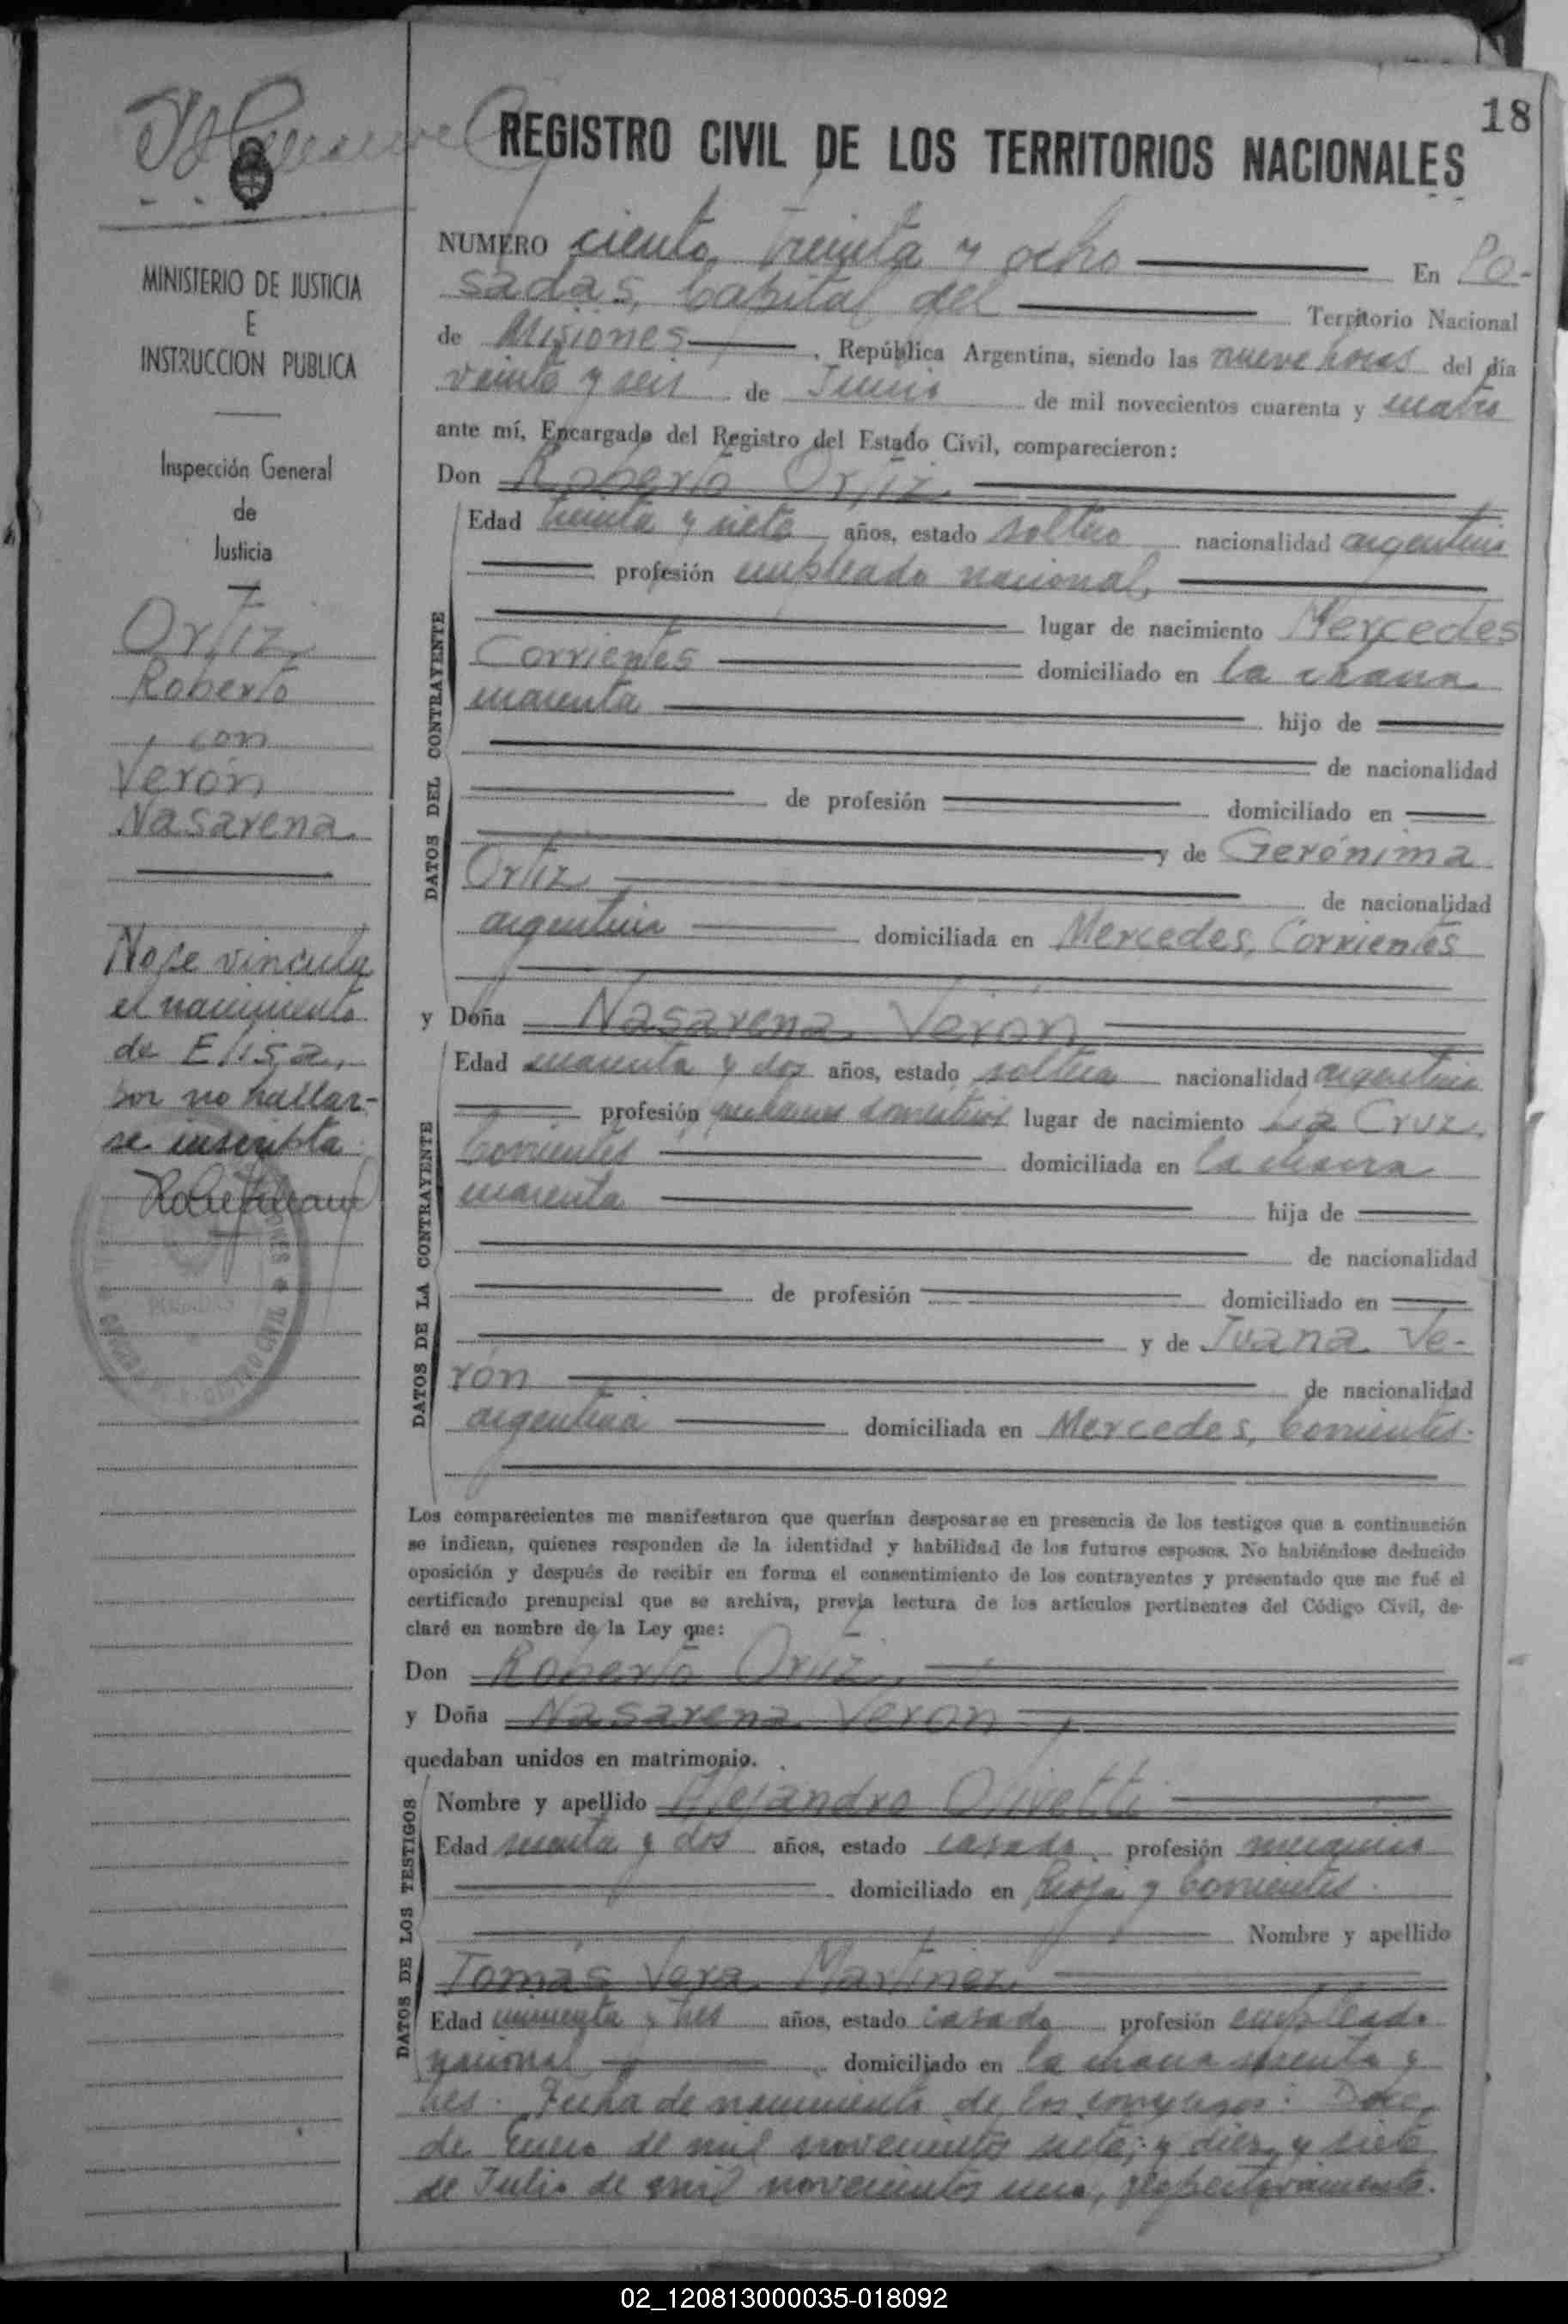 18
REGISTRO CIVIL DE LOS TERRITORIOS NACIONALES
MINISTERIO DE JUSTICIA
E
INSTRUCCION PUBLICA
Inspección General
de
Justicia
Ortiz
Roberto
con
Verón
Nasarena
No se vincula
el nacimiento
de Elisa,
por no hallar-
se inscripta
NUMERO ciento treinta y ocho En Po-
sadas, Capital del Territorio Nacional
de Misiones, República Argentina, siendo las nueve horas del día
veinte y seis de Junio de mil novecientos cuarenta y cuatro
ante mí, Encargado del Registro del Estado Civil, comparecieron:
Don Roberto Ortiz,
DATOS DEL CONTRAYENTE
Edad treinta y siete años, estado soltero nacionalidad argentino
profesión empleado nacional,
lugar de nacimiento Mercedes
Corrientes domiciliado en la chacra
cuarenta hijo de
de nacionalidad
de profesión domiciliado en
y de Gerónima
Ortiz, de nacionalidad
argentina domiciliada en Mercedes, Corrientes
y Doña Nasarena Verón
DATOS DE LA CONTRAYENTE
Edad cuarenta y dos años, estado soltera nacionalidad argentina
profesión quehaceres domésticos lugar de nacimiento La Cruz,
Corrientes domiciliada en la chacra
cuarenta hija de
de nacionalidad
de profesión domiciliado en
y de Juana Ve-
rón de nacionalidad
argentina domiciliada en Mercedes, Corrientes.
Los comparecientes me manifestaron que querían desposarse en presencia de los testigos que a continuación
se indican, quienes responden de la identidad y habilidad de los futuros esposos. No habiéndose deducido
oposición y después de recibir en forma el consentimiento de los contrayentes y presentado que me fué el
certificado prenupcial que se archiva, previa lectura de los artículos pertinentes del Código Civil, de-
claré en nombre de la Ley que:
Don Roberto Ortiz,
y Doña Nasarena Verón,
quedaban unidos en matrimonio.
DATOS DE LOS TESTIGOS
Nombre y apellido Alejandro Olivetti
Edad y dos años, estado casado, profesión mecánico
domiciliado en Rioja y Corrientes.
Nombre y apellido
Tomás Vera Martinez,
Edad cincuenta y tres años, estado casado profesión empleado
nacional domiciliado en la chacra y
tres. Fecha de nacimiento de los conyuges: Doce
de Enero de mil novecientos siete; y diez y siete
de Julio de mil novecientos uno, respectivamente.
02_120813000035-018092